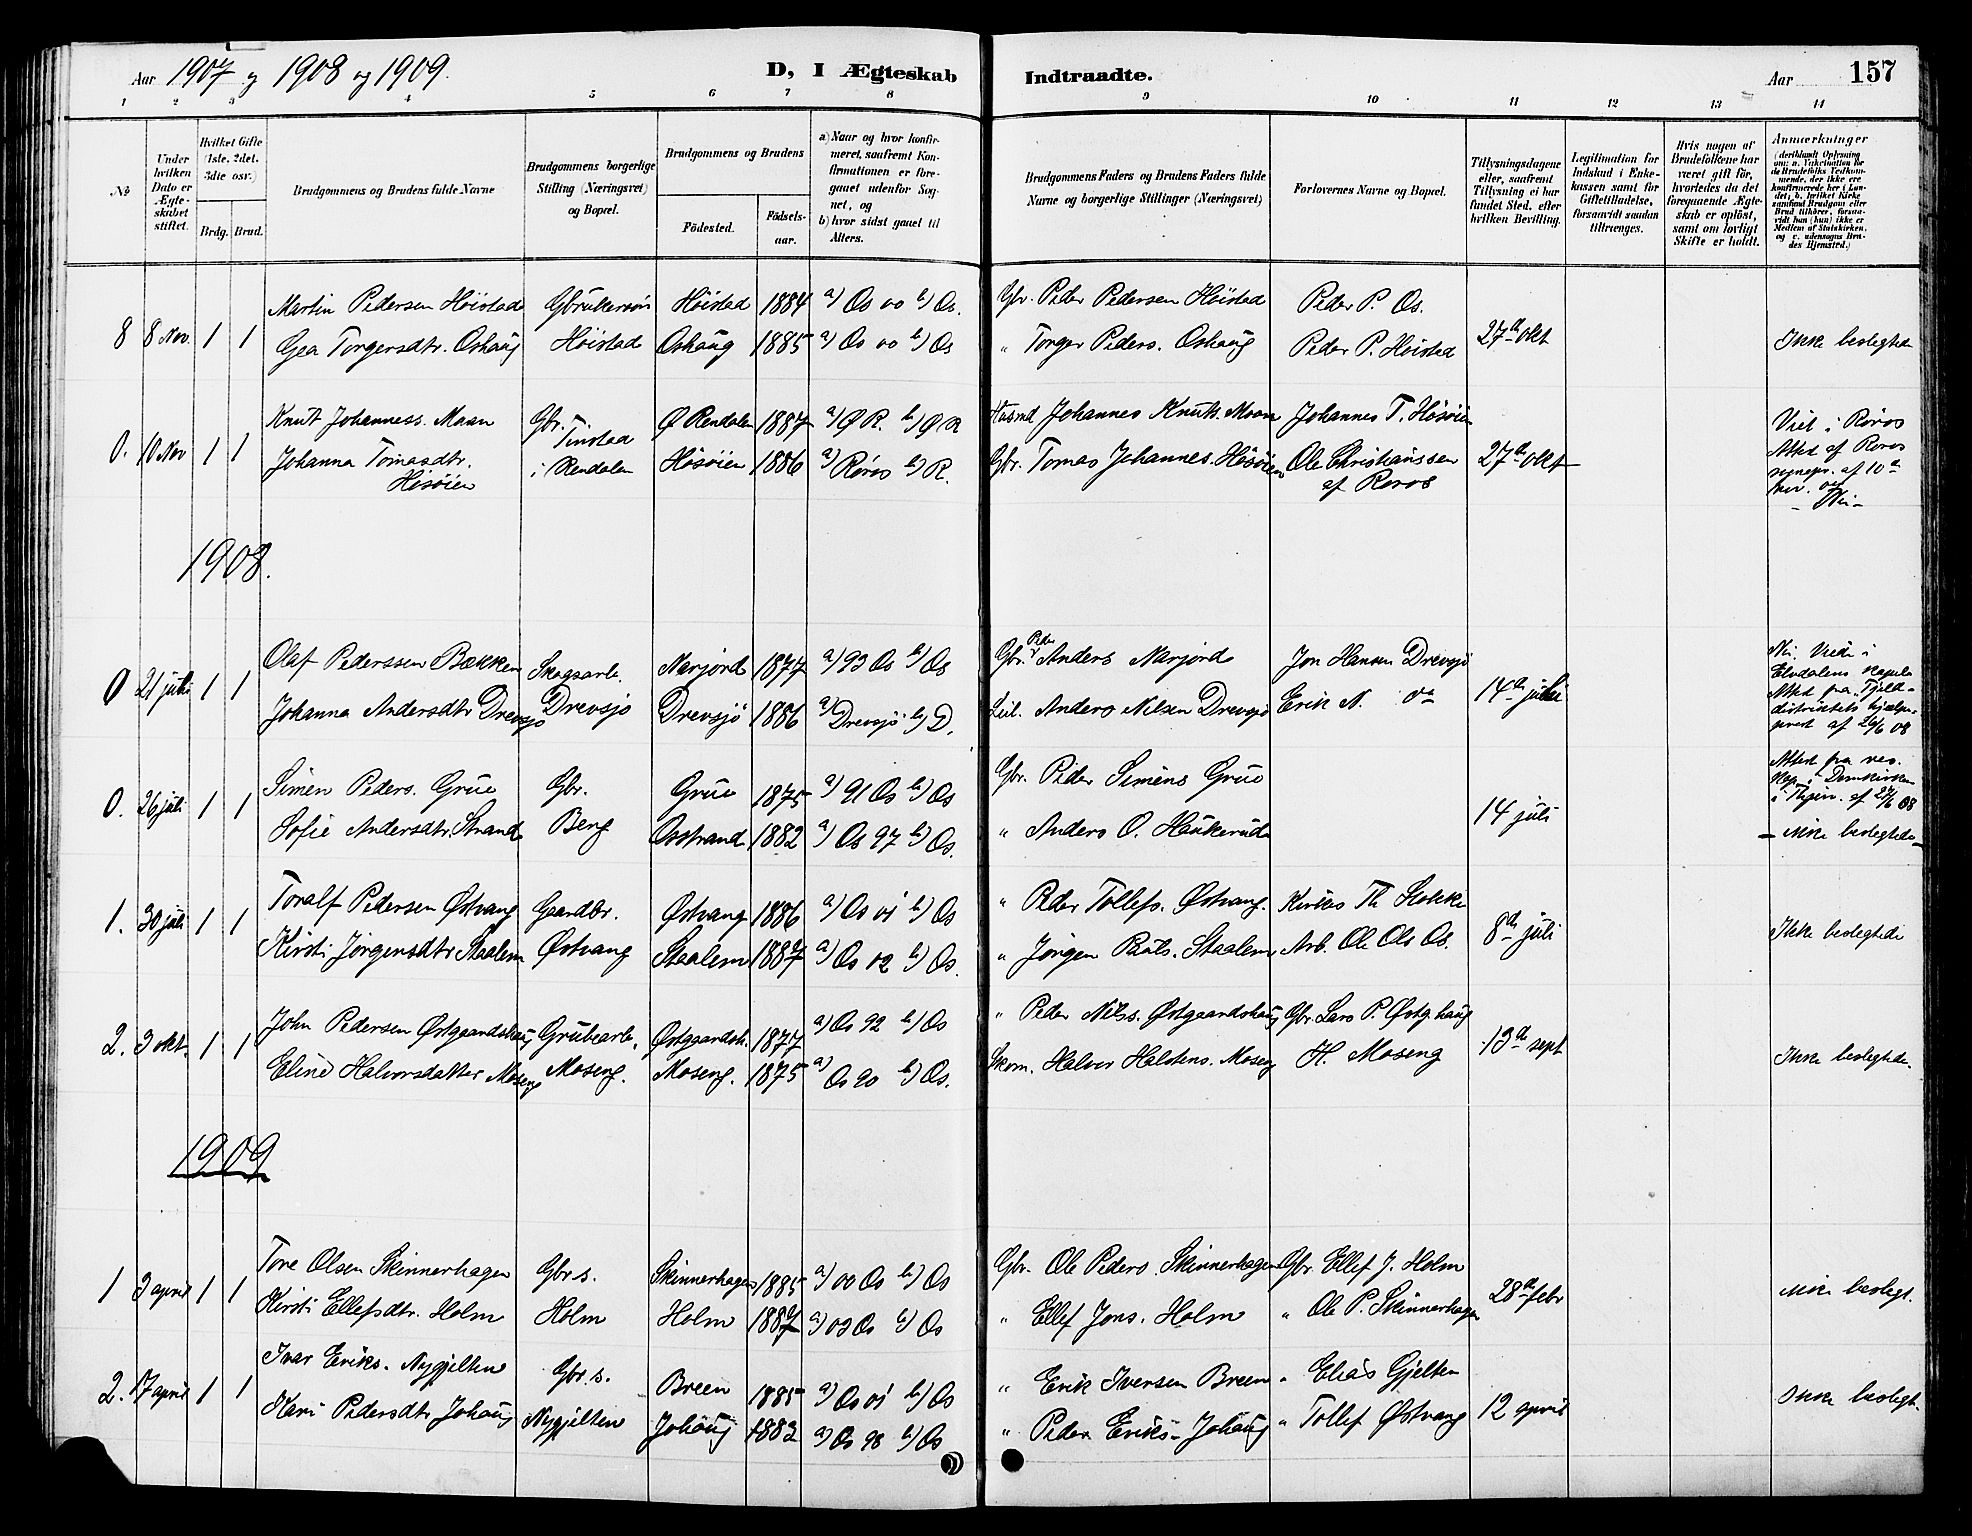 Aar 1907 og 1908 og 1909.
D, I Ægteskab Indtraadte.
Aar 157
1 2 3 4 5 6 7 8 9 10 11 12 13 14
No
Under hvilken Dato er Ægteskabet stiftet.
Hvilket Gifte (1ste, 2det, 3die osv.)
Brdg. Brud.
Brudgommens og Brudens fulde Navne
Brudgommens borgerlige Stilling (Næringsvei) og Bopæl.
Brudgommens og Brudens
Födested. Födselsaar.
a) Naar og hvor konfirmeret, saafremt Konfirmationen er foregaaet udenfor Sognet, og
b) hvor sidst gaaet til Alters.
Brudgommens Faders og Brudens Faders fulde Navne og borgerlige Stillinger (Næringsvei)
Forlovernes Navne og Bopæl.
Tillysningsdagene eller, saafremt Tillysning ei har fundet Sted, efter hvilken Bevilling.
Legitimation for Indskud i Enkekassen samt for Giftetilladelse, forsaavidt saadan tiltrænges.
Hvis nogen af Brudefolkene har været gift för, hvorledes da det foregaaende Ægteskab er oplöst, samt om lovligt Skifte er holdt.
Anmærkninger
(deriblandt Oplysning om: a. Vakcination for de Brudefolks Vedkommende, der ikke ere konfirmerede her i Landet; b. hvilket Kirkesamfund Brudgom eller Brud tilhörer, forsaavidt han (hun) ikke er Medlem af Statskirken, og c. udensogns Brudes Hjemsted.)
8 8 Nov. 1 1 Martin Pedersen Höistad Gbrukersön Höistad 1884 a) Os 00 b) Os. Gbr. Peder Pedersen Höistad Peder P. Os. 27de okt Ikke beslegtede
Gea Torgersdtr. Oshaug Höistad Oshaug 1885 a) Os 00 b) Os " Torger Peders. Oshaug Peder P. Höistad
0. 10 Nov 1 1 Knut Johanness. Maan Gbr. Tinstad Ø Rendalen 1887 a) Ø R. b) Ø R Husmd Johannes Knuts. Maan Johannes T. Hösöien 27de okt Viet i Röros
Johanna Tomasdtr. Hösöien i Rendalen Hösöien 1886 a) Röros b) R. Gbr. Tomas Johannes. Hösöien Ole Christianssen af Röros Attest af Röros
sognepr. af 10de
1908.
0 21 juli 1 1 Olaf Pederssen Bækken Skogsarb. Narjord 1877 a) 93 Os b) Os Gbr. Peder Anders Narjord Jon Hansen Drevsjö 14de juli
Johanna Andersdtr Drevsjö Drevsjö Drevsjö 1886 a) Drevsjö b) D. Anders Nilsen Drevsjö Erik N. do
Elvdalens Kapel
Attest fra
af 26/6 08
0. 26 juli 1 1 Simen Peders. Grue Gbr. Grue 1875 a) 91 Os b) Os Gbr. Peder Simens Grue 14 juli Attest fra res.
Sofie Andersdtr. Strand Berg Osstrand 1882 a) Os 97 b) Os. " Anders O. Haukerud
Kap. i Domkirken
i Thjem. af 27/6 08
- ikke beslegtede -
1. 30 juli 1 1 Toralf Pedersen Østvang Gaardbr. Østvang 1886 a) Os 01 b) Os " Peder Tollefs. Østvang. Kirkes Th Stokke 8de juli Ikke beslegtede
Kirsti Jörgensdtr Staalem Østvang Staalem 1887 a) Os 02 b) Os. " Jörgen Pauls. Staalem Arb. Ole Ols Os.
2. 3 okt. 1 1 John Pedersen Østgaardshaug Grubearb. Østgaardsh. 1877 a) Os 92 b) Os " Peder Nilss. Østgaardshaug Gbr. Lars P. Østg.haug 13de sept Ikke beslegtede.
Eline Halvorsdatter Moseng Moseng. Moseng. 1875 a) Os 90 b) Os. Skom. Halvor Halstens. Moseng H. Moseng
1909
1 3 april 1 1 Tore Olsen Skinnerhagen Gbr s. Skinnerhagen 1885 a) 00 Os b) Os Gbr. Ole Peders. Skinnerhagen Gbr. Ellef J. Holm 28de febr ikke beslegt.
Kirsti Ellefsdtr. Holm Holm Holm 1887 a) 03 Os b) Os " Ellef Jons. Holm " Ole P. Skinnerhagen
2. 17 april 1 1 Ivar Eriks. Nygjelten Gbr. s. Breen 1885 a) Os 01 b) Os " Erik Iversen Breen " Elias Gjelten 12 april Ikke beslegt.
Kari Pedersdtr Johaug Nygjelten Johaug 1883 a) Os 98 b) Os " Peder Eriks- Johaug " Tollef Østvang